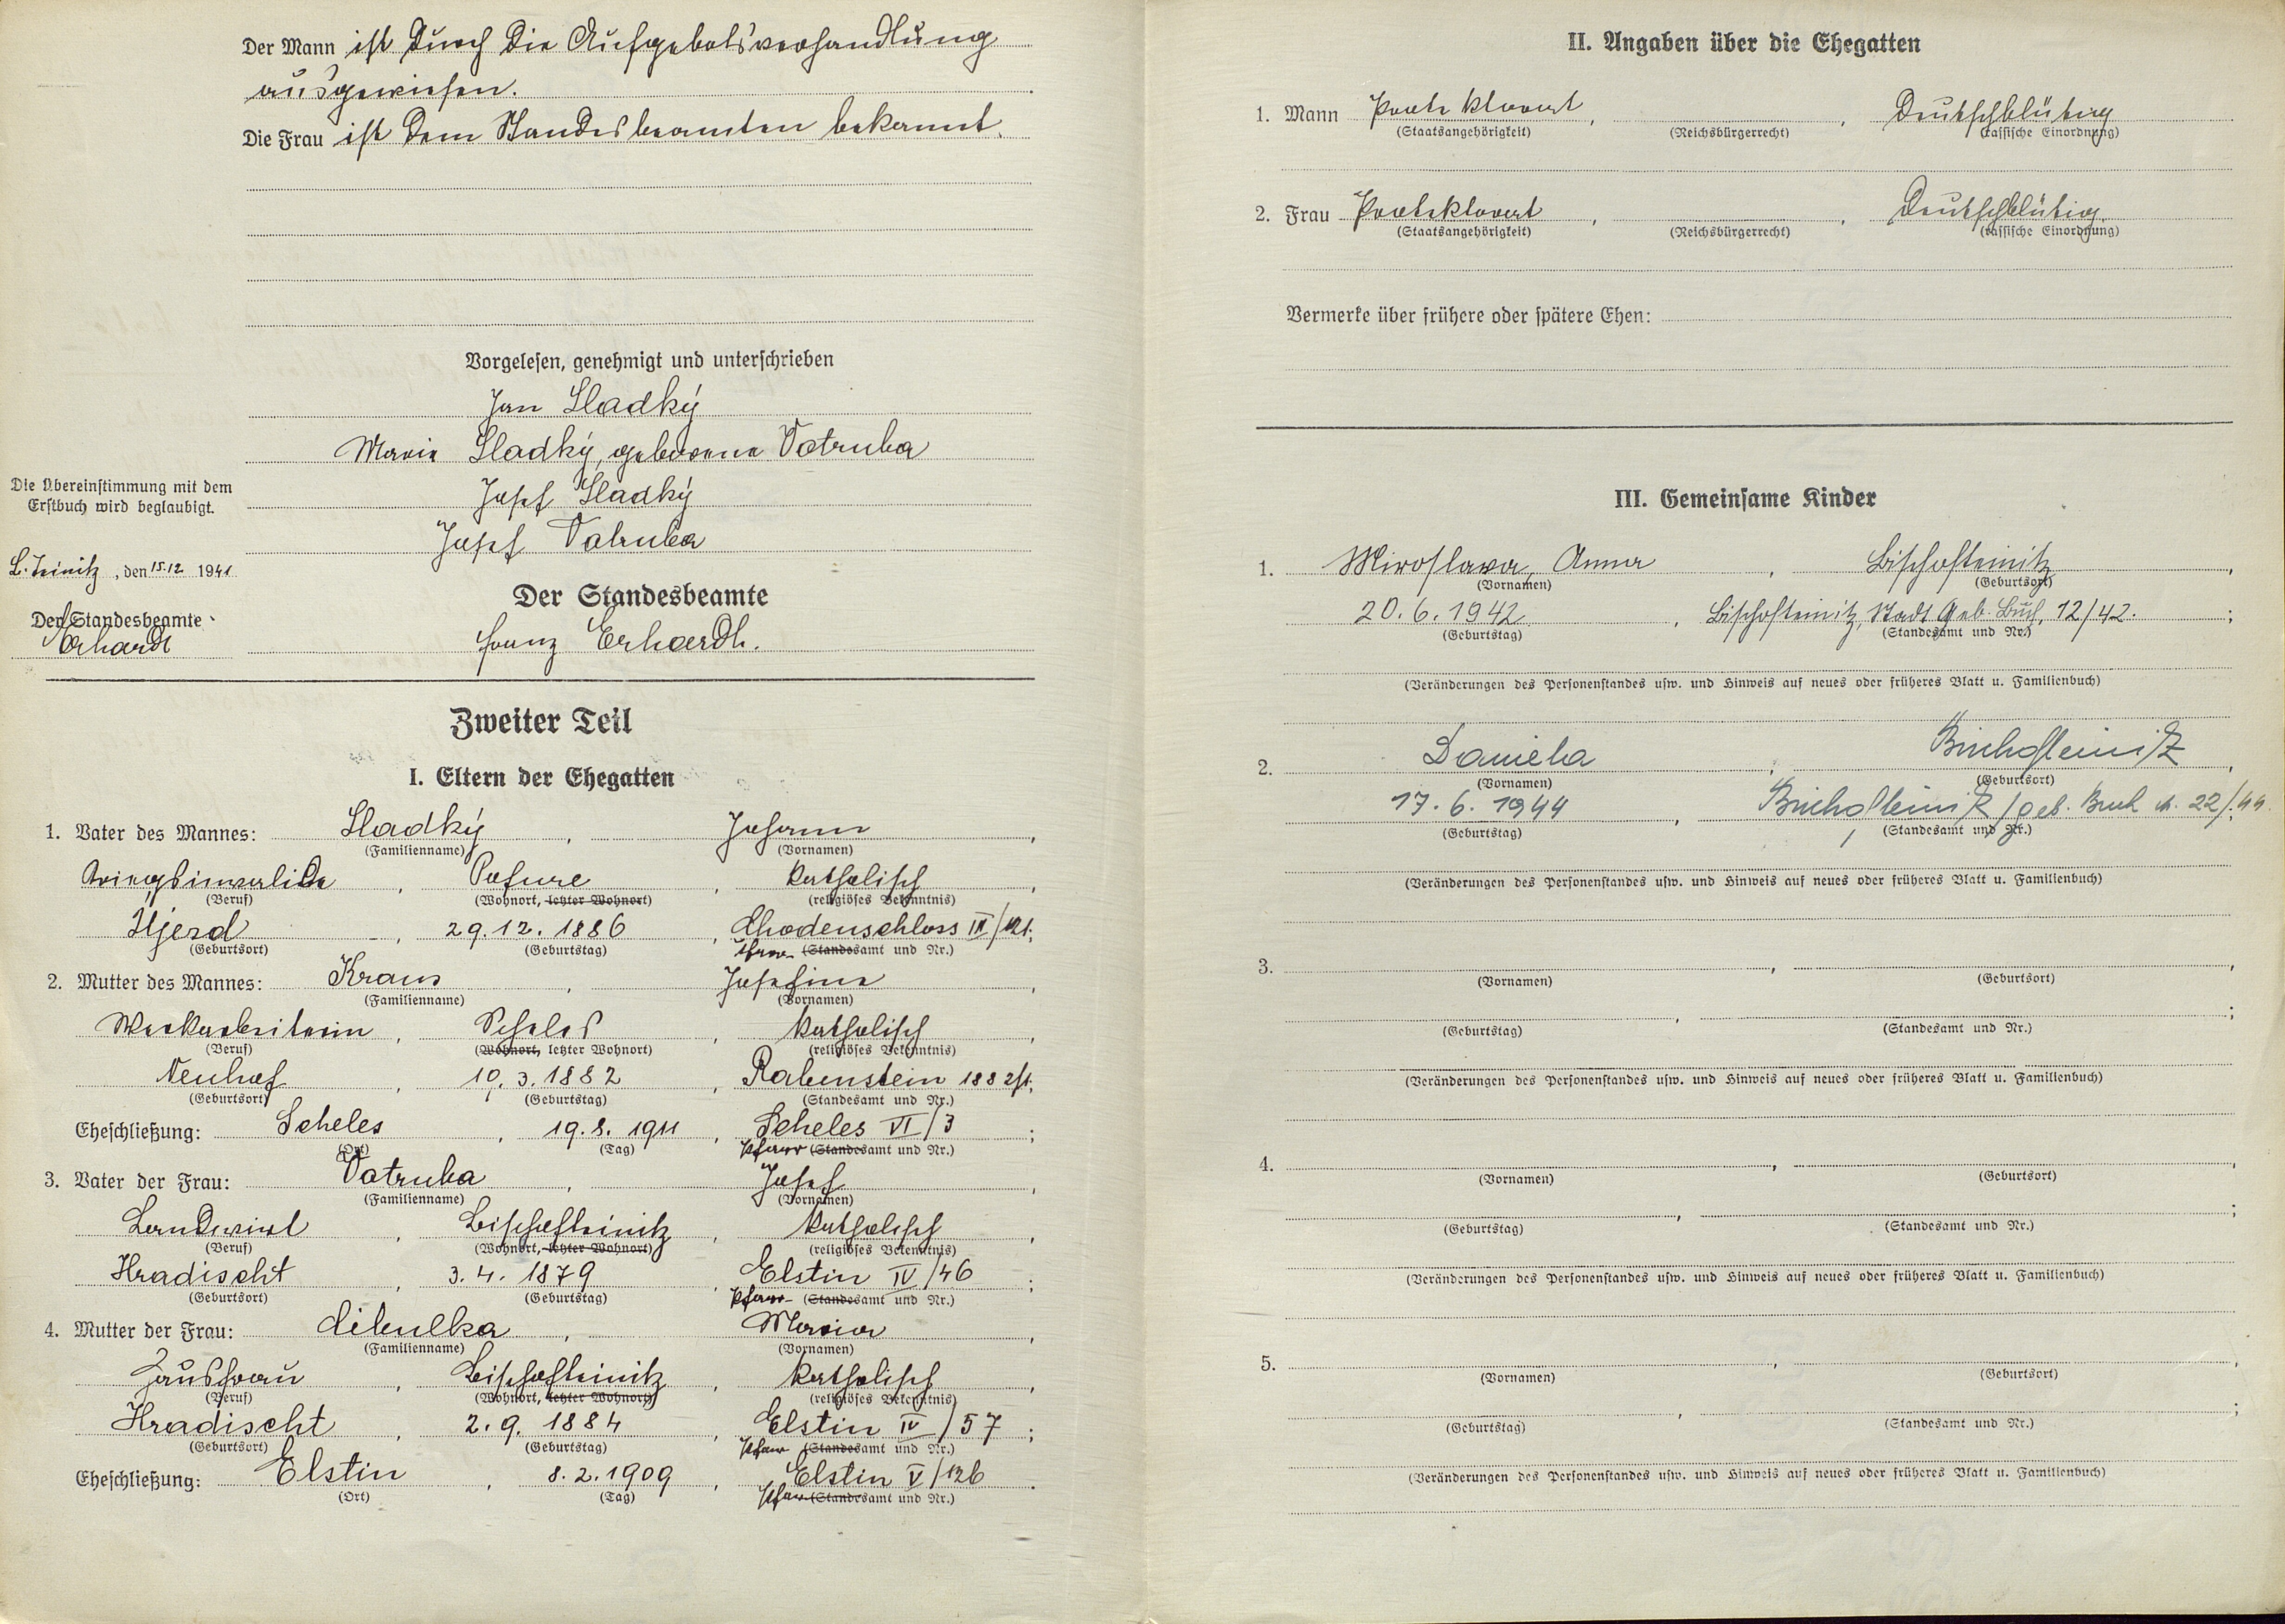 Der Mann ist durch die Aufgebotsverhandlung
ausgewiesen.
Die Frau ist dem Standesbeamten bekannt.
Vorgelesen, genehmigt und unterschrieben
Jan Sladký
Marie Sladký, geborene Votruba
Josef Sladký
Josef Votruba
Die Übereinstimmung mit dem
Erstbuch wird beglaubigt.
B. Teinitz, den 15.12 1941
Der Standesbeamte
Erhardt
Der Standesbeamte
Franz Erhardt.
Zweiter Teil
I. Eltern der Ehegatten
1. Vater des Mannes: Sladký, Johann,
(Familienname) (Vornamen)
Kriegsinvalide, katholisch,
(Beruf) (Wohnort, letzter Wohnort) (religiöses Bekenntnis)
Ujezd, 29.12.1886, Chodenschloss III/121;
(Geburtsort) (Geburtstag) Pfarr- (Standesamt und Nr.)
2. Mutter des Mannes: Kraus, Josefine,
(Familienname) (Vornamen)
Werkarbeiterin, Scheles, katholisch,
(Beruf) (Wohnort, letzter Wohnort) (religiöses Bekenntnis)
Neuhof, 10.3.1882, Rabenstein 1882/1;
(Geburtsort) (Geburtstag) (Standesamt und Nr.)
Eheschließung: Scheles, 19.8.1911, Scheles VI/3;
(Ort) (Tag) Pfarr (Standesamt und Nr.)
3. Vater der Frau: Votruba, Josef,
(Familienname) (Vornamen)
Landwirt, Bischofteinitz, katholisch,
(Beruf) (Wohnort, letzter Wohnort) (religiöses Bekenntnis)
Hradischt, 3.4.1879, Elstin IV/46;
(Geburtsort) (Geburtstag) Pfarr- (Standesamt und Nr.)
4. Mutter der Frau: Cibulka, Maria,
(Familienname) (Vornamen)
Hausfrau, Bischofteinitz, katholisch,
(Beruf) (Wohnort, letzter Wohnort) (religiöses Bekenntnis)
Hradischt, 2.9.1884, Elstin IV/57;
(Geburtsort) (Geburtstag) Pfarr (Standesamt und Nr.)
Eheschließung: Elstin, 8.2.1909, Elstin V/126.
(Ort) (Tag) Pfarr (Standesamt und Nr.)
II. Angaben über die Ehegatten
1. Mann Protektorat, , Deutschblütig
(Staatsangehörigkeit) (Reichsbürgerrecht) (rassische Einordnung)
2. Frau Protektorat, , Deutschblütig.
(Staatsangehörigkeit) (Reichsbürgerrecht) (rassische Einordnung)
Vermerke über frühere oder spätere Ehen:
III. Gemeinsame Kinder
1. Miroslava, Anna, Bischofteinitz,
(Vornamen) (Geburtsort)
20.6.1942, Bischofteinitz, Stadt Geb. Buch, 12/42.;
(Geburtstag) (Standesamt und Nr.)
(Veränderungen des Personenstandes usw. und Hinweis auf neues oder früheres Blatt u. Familienbuch)
2. Daniela, Bischofteinitz,
(Vornamen) (Geburtsort)
17.6.1944, Bischofteinitz, geb. Buch 22/44;
(Geburtstag) (Standesamt und Nr.)
(Veränderungen des Personenstandes usw. und Hinweis auf neues oder früheres Blatt u. Familienbuch)
3. , ,
(Vornamen) (Geburtsort)
, ;
(Geburtstag) (Standesamt und Nr.)
(Veränderungen des Personenstandes usw. und Hinweis auf neues oder früheres Blatt u. Familienbuch)
4. , ,
(Vornamen) (Geburtsort)
, ;
(Geburtstag) (Standesamt und Nr.)
(Veränderungen des Personenstandes usw. und Hinweis auf neues oder früheres Blatt u. Familienbuch)
5. , ,
(Vornamen) (Geburtsort)
, ;
(Geburtstag) (Standesamt und Nr.)
(Veränderungen des Personenstandes usw. und Hinweis auf neues oder früheres Blatt u. Familienbuch)